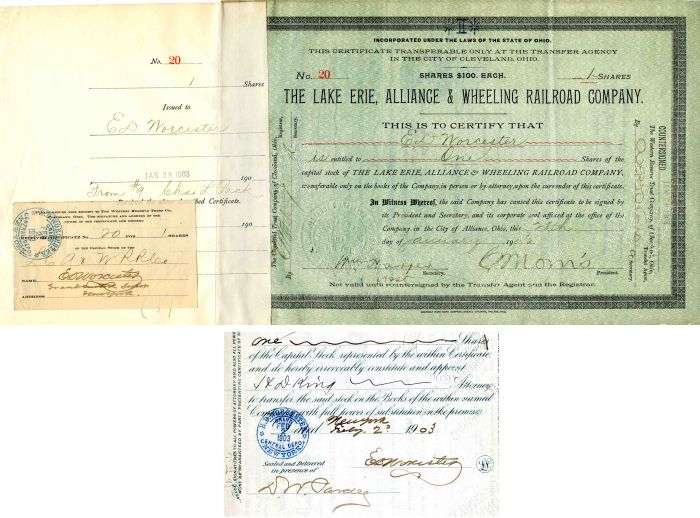 No. 20
1 Shares
Issued to
Ed Worcester
190
JAN 28 1903
From #9 Chas L
Certificate.
190
RECEIVED CERTIFICATE No. 20 FOR 1 SHARES
OF THE CAPITAL STOCK OF THE
NAME
ED Worcester
ADDRESS
New York
II
INCORPORATED UNDER THE LAWS OF THE STATE OF OHIO.
THIS CERTIFICATE TRANSFERABLE ONLY AT THE TRANSFER AGENCY
IN THE CITY OF CLEVELAND, OHIO.
No. 20 SHARES $100. EACH. 1 SHARES
THE LAKE ERIE, ALLIANCE & WHEELING RAILROAD COMPANY.
THIS IS TO CERTIFY THAT
Ed Worcester
is entitled to One Shares of the
capital stock of THE LAKE ERIE, ALLIANCE & WHEELING RAILROAD COMPANY,
transferable only on the books of the Company, in person or by attorney, upon the surrender of this certificate.
In Witness Whereof, the said Company has caused this certificate to be signed by
its President and Secretary, and its corporate seal affixed at the office of the
Company in the City of Alliance, Ohio, this
day of January 1903
Secretary. President.
Not valid until countersigned by the Transfer Agent and the Registrar.
COUNTERSIGNED
The Western Reserve Trust Company, of Cleveland, Ohio,
Transfer Agent.
By Secretary
The Guardian Trust Company of Cleveland, Ohio, Registrar,
By Secretary.
One Shares
of the Capital Stock represented by the within Certificate
and do hereby irrevocably constitute and appoint
Attorney
to transfer the said stock on the Books of the within named
Company with full power of substitution in the premises.
Dated New York
Feby 2d 1903
E.D. WORCESTER
GRAND
FEB
2
1903
CENTRAL DEPOT
NEW YORK
Sealed and Delivered
in presence of
ED Worcester